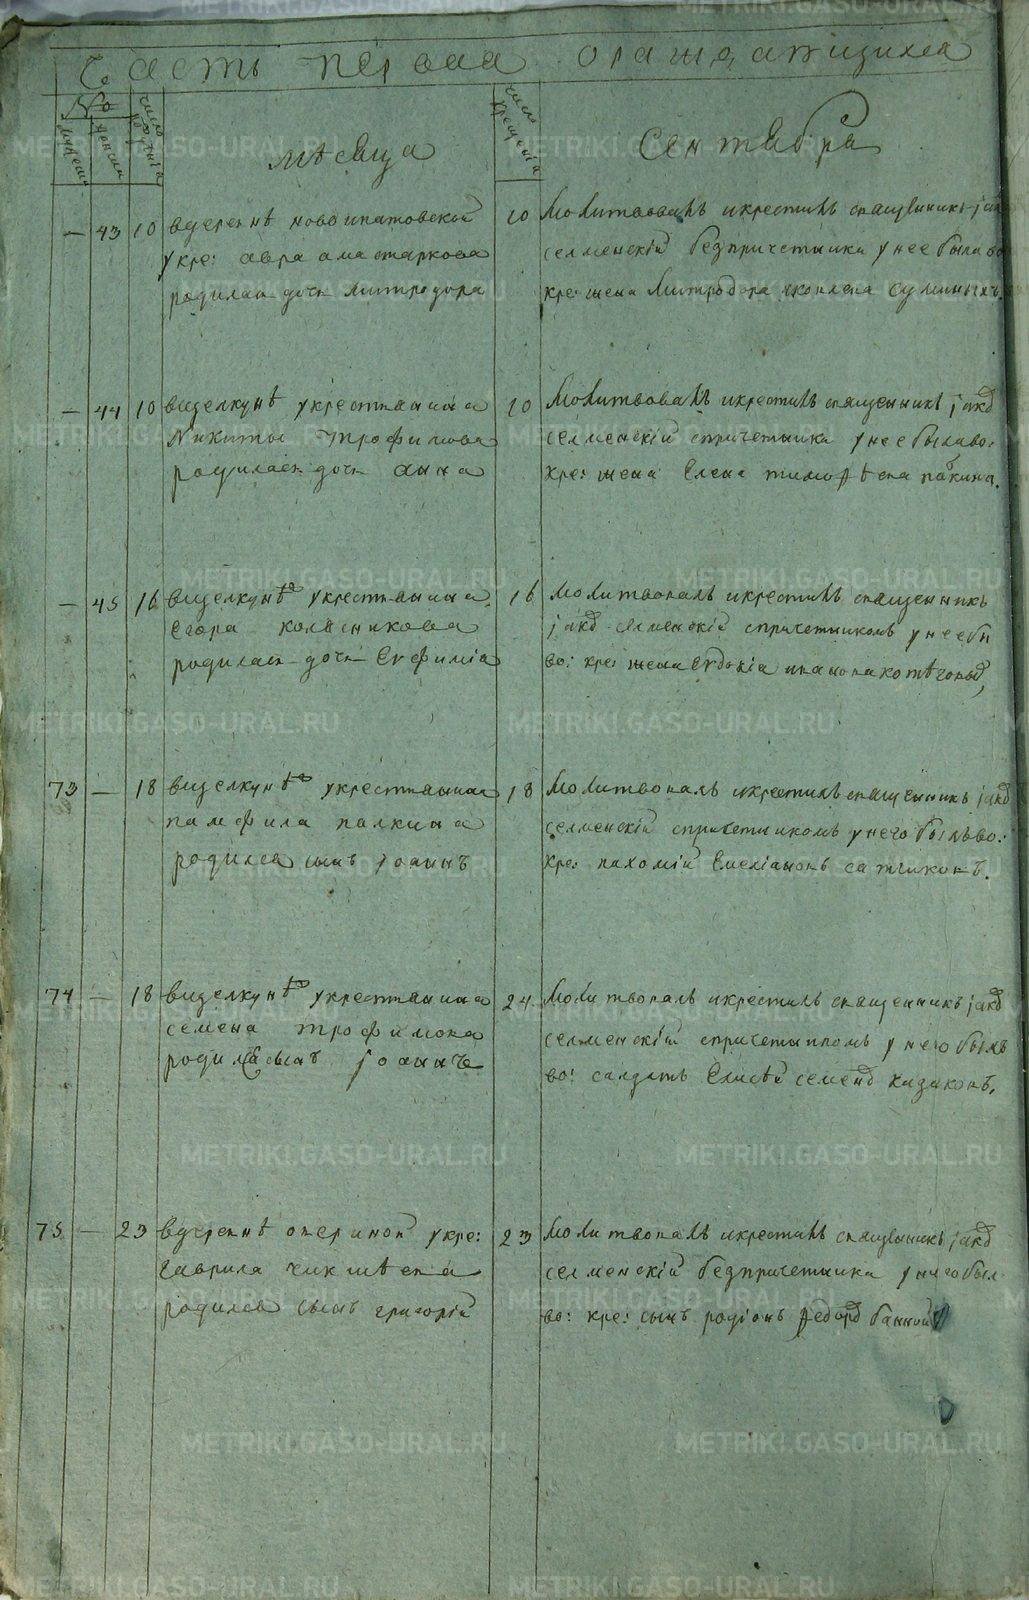 Часть первая о раждающихся
№
мужеска
женска
число рожденія
мѣсяца
число крещенія
Сентября
43 10 в деревнѣ новоипатовской
у кре: авраама старкова
родилась дочь Митродора
10 Молитвовалъ и крестилъ священникъ іак
селменскій бедпричетника у нее была во
кре: жена Митродора яковлева суминыхъ.
44 10 в щелкунѣ у крестьянина
Никиты Трофимова
родилась дочь анна
10 Молитвовалъ и крестилъ священникъ іакѡ
селменскій спричетника у нее была во:
кре: жена Елена тимофѣева палкина.
45 16 в щелкунѣ у крестьянина
Егора колѣсникова
родилась дочь Евфиміа
16 Молитвовалъ и крестилъ священникъ
іакѡ селменскій спричетникомъ у нее бы
во: кре: жена Евдокіа иванова
73 18 в щелкунѣ у крестьянина
памфила палкина
родился сынъ іоаннъ
18 Молитвовалъ и крестилъ священникъ іакѡ
селменскій спричетникомъ у него былъ во:
кре: пахомій Емеліановъ
74 18 в щелкунѣ у крестьянина
семена трофимова
родился сынъ іоаннъ
24 Молитвовалъ и крестилъ священникъ іакѡ
селменскій спричетникомъ у него былъ
во: салдатъ Елисѣй семенѡ казаковъ.
75 23 в деревнѣ авериной у кре:
гаврила чикишева
родился сынъ григорій
23 Молитвовалъ и крестилъ священникъ іакѡ
селменскій бедпричетника у него был
во: кре: сынъ родіонъ федорѡ
METRIKI.GASO-URAL.RU